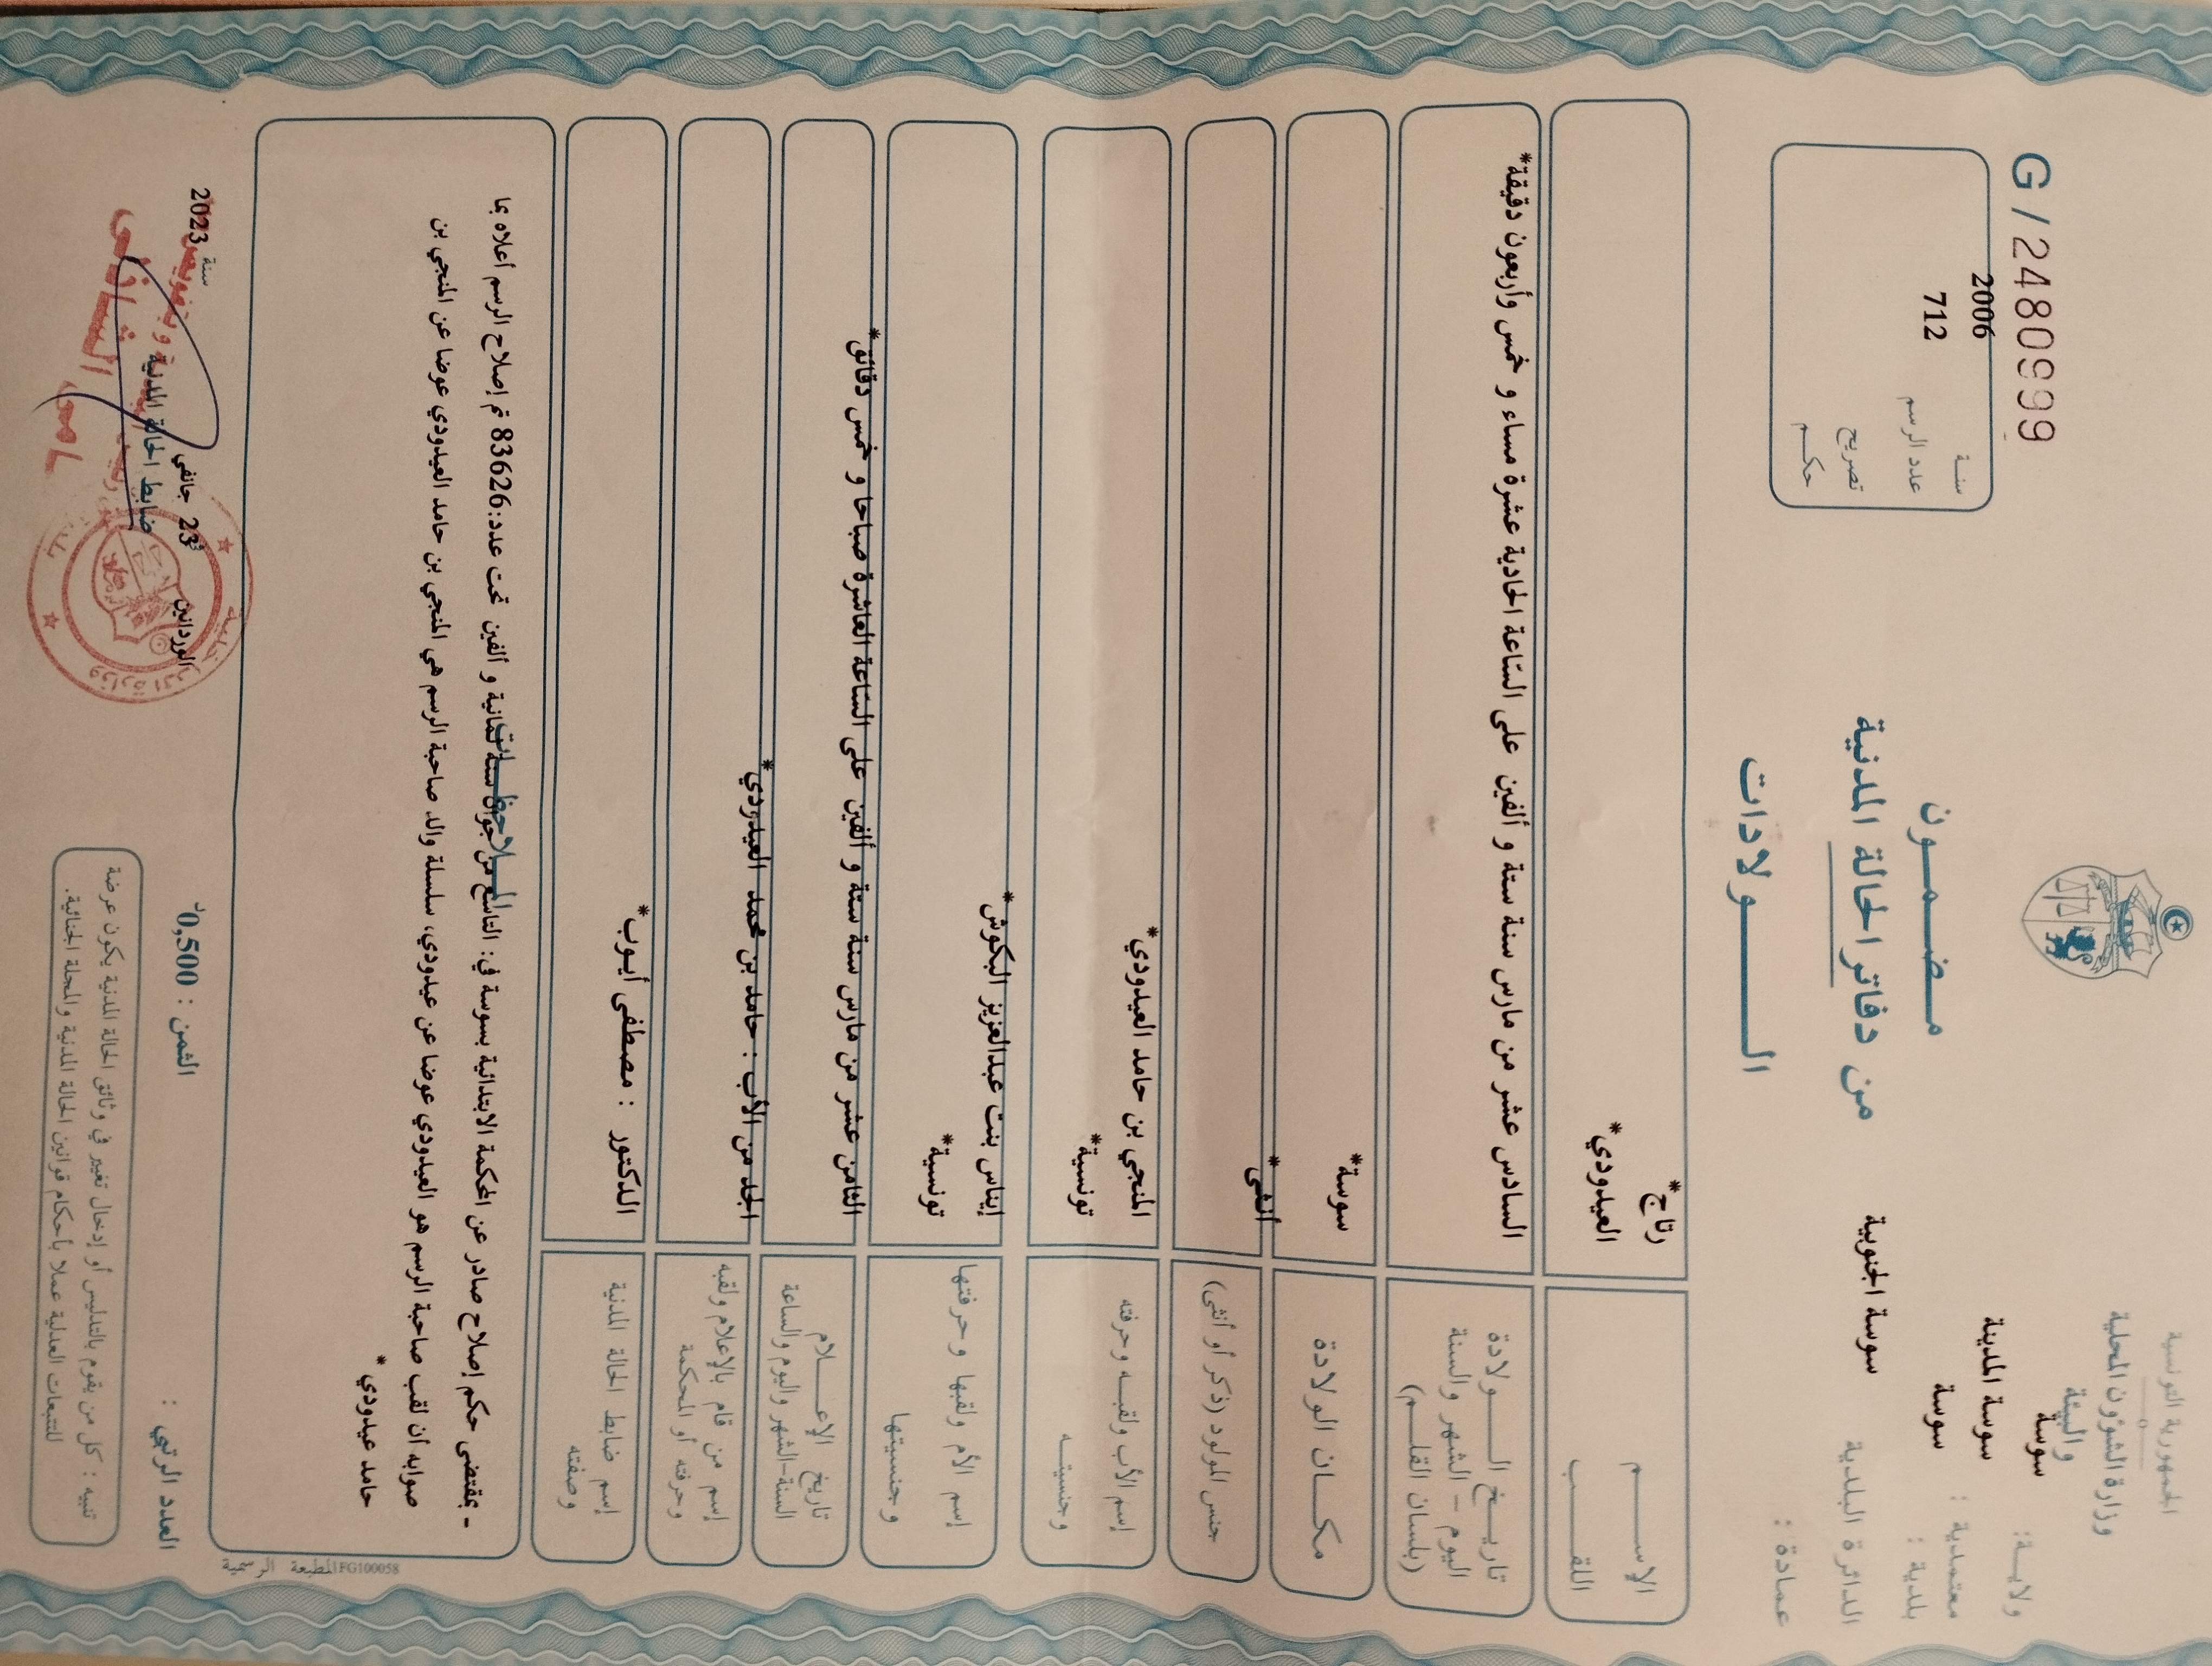 الجمهورية التونسية
وزارة الشؤون المحلية
والبيئة
ولايـــة: سوسة
معتمدية : سوسة المدينة
بلدية : سوسة
الدائرة البلدية سوسة الجنوبية
عمادة :
G/2480999
سنـة 2006
عدد الرسم 712
تصريح
حكـــم
مـضـــمـــون
من دفاتر الحالة المدنية
الـــــولادات
الإســــــم رتاج*
اللقـــــب العيدودي*
تاريـــخ الـــــولادة
اليوم – الشهر والسنة
(بلسان القلـــم)
السادس عشر من مارس سنة ستة و ألفين على الساعة الحادية عشرة مساء و خمس وأربعون دقيقة*
مكـــان الولادة سوسة*
جنس المولود (ذكر أو أنثى) أنثى*
إسم الأب ولقبـــه وحرفته المنجي بن حامد العيدودي*
وجنسيتـــه تونسية*
إسم الأم ولقبها وحرفتها إيناس بنت عبدالعزيز البكوش*
وجنسيتها تونسية*
تاريخ الإعـــــلام
السنة-الشهر واليوم والساعة
الثامن عشر من مارس سنة ستة و ألفين على الساعة العاشرة صباحا و خمس دقائق*
إسم من قام بالإعلام ولقبه
وحرفته أو المحكمة
الجد من الأب : حامد بن محمد العيدودي*
إسم ضابط الحالة المدنية
وصفته
الدكتور : مصطفى أيوب*
الملاحظـــات
- بمقتضى حكم إصلاح صادر عن المحكمة الابتدائية بسوسة في: التاسع من جوان سنة ثمانية و ألفين تحت عدد:83626 تم إصلاح الرسم أعلاه بما
صوابه أن لقب صاحبة الرسم هو العيدودي عوضا عن عيدودي، سلسلة والد صاحبة الرسم هي المنجي بن حامد العيدودي عوضا عن المنجي بن
حامد عيدودي*
المطبعة الرسمية IFG100058
العدد الرتبي :
الثمن : 0,500د
الوردانين 23 جانفي سنة 2023
ضابط الحالة المدنية
تنبيه : كل من يقوم بالتدليس أو إدخال تغيير في وثائق الحالة المدنية يكون عرضة
للتتبعات العدلية عملا بأحكام قوانين الحالة المدنية والمجلة الجنائية.